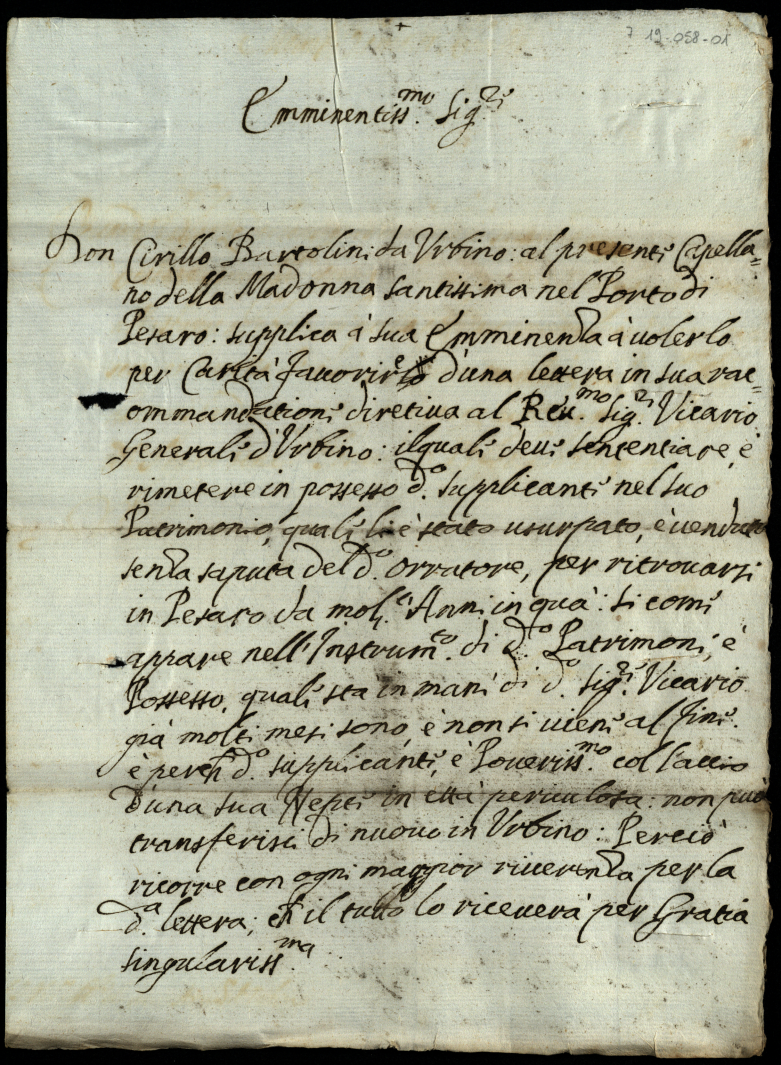 7 19-058-01
Emminentiss.mo Sig.re
Don Cirillo Bartolini da Urbino: al presente Capella=
no della Madonna santissima nel Porto di
Pesaro: supplica à sua Emminenza à volerlo
per Carità favorire d'una lettera in sua rac=
ommandatione diretiva al Reu.mo Sig.r Vicario
Generale d'Urbino: il quale deve sententiare, è
rimetere in possesso d.o supplicante nel suo
Patrimonio, quale li è stato usurpato, è venduto
senza saputa del d.o orratore, per ritrovarsi
in Pesaro da molt.i Anni in quà: si come
appare nell'Instrum.to di d.o Patrimonio, è
Possesso, quale sta in mani di d.o Sig.re Vicario
già molti mesi sono, è non si viene al fine.
è perch d.o supplicante, è Poveriss.mo col
d'una sua Nepte in età periculosa: non può
transferirsi di nuovo in Urbino: Perciò
ricorre con ogni maggior riverenza per la
d.a lettera; ch il tutto lo riceverà per Gratia
singulariss.ma